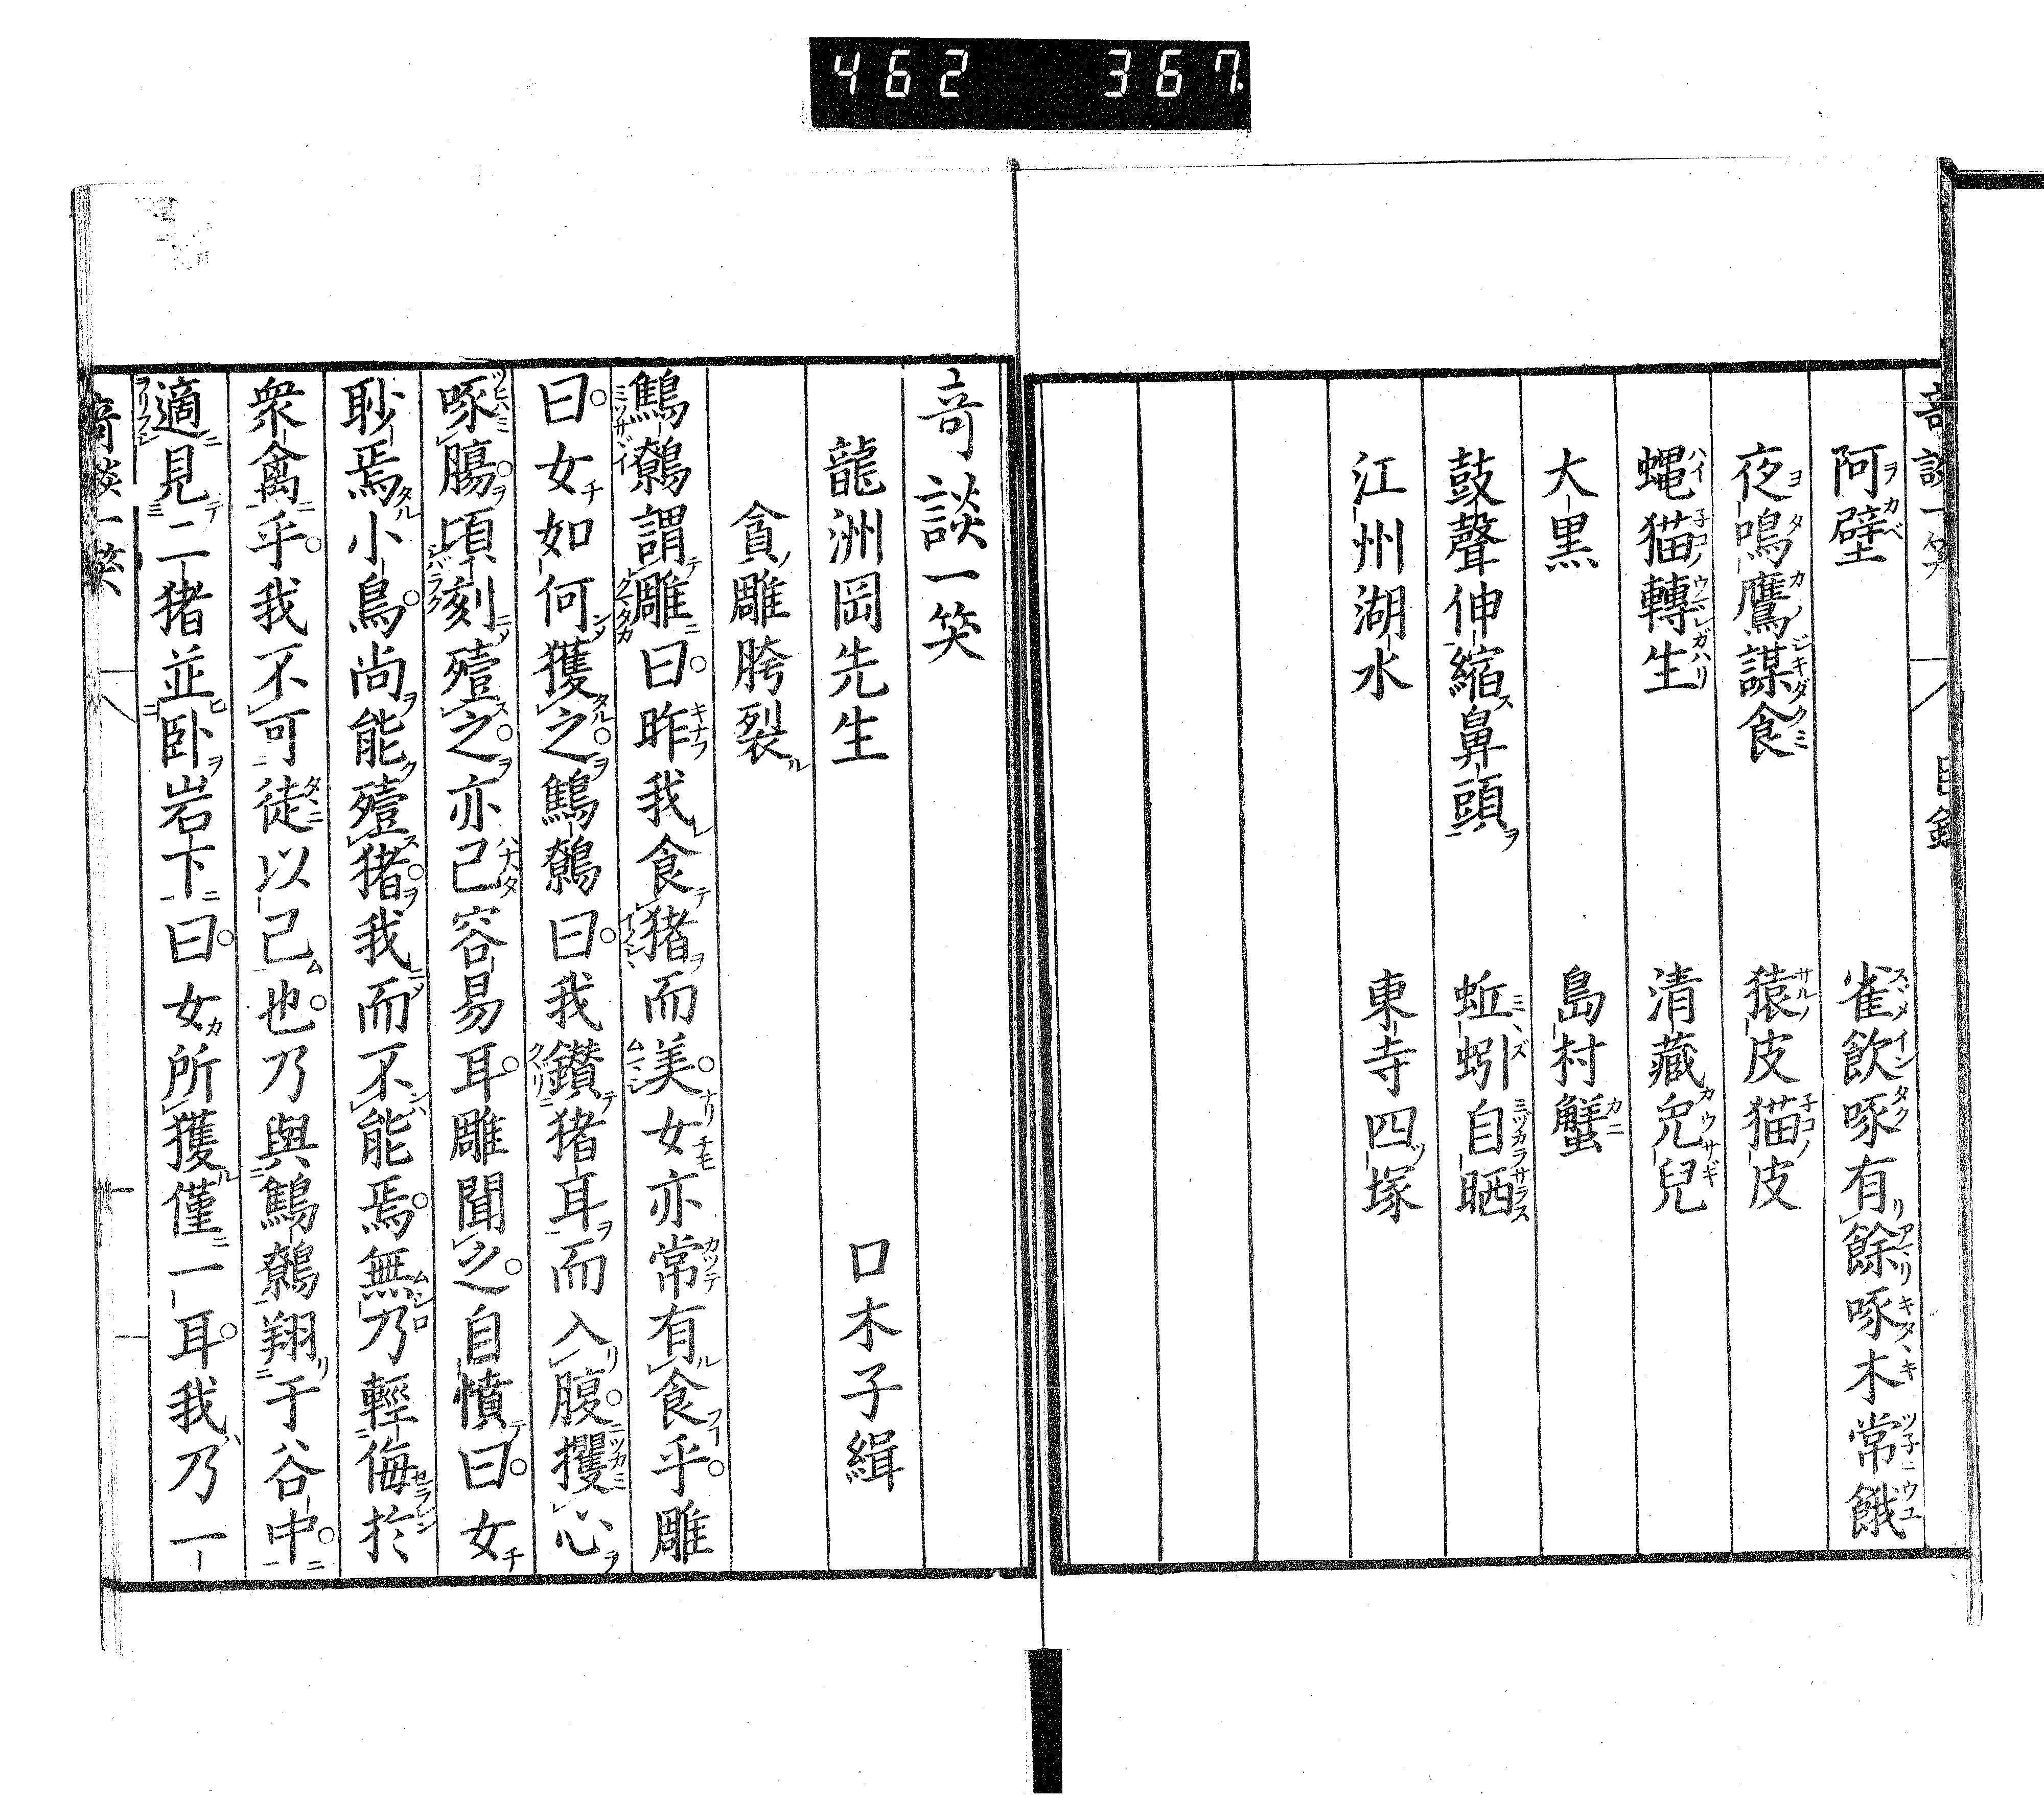 462 367
奇談一笑 目録
阿壁 雀飲啄有餘啄木常餓
夜鳴鷹謀食 猿皮猫皮
蠅猫轉生 清藏兒兒
大黒 島村蟹
鼓聲伸縮鼻頭 蚯蚓自晒
江州湖水 東寺四塚
奇談一笑
龍洲岡先生 口木子緝
貪雕胯裂
鷦鷯謂雕曰昨我食猪而美女亦常有食乎雕
曰女如何獲之鷦鷯曰我鑽猪耳而入腹攫心
啄腸頃刻殪之亦已容易耳雕聞之自憤曰女
眇焉小鳥尚能殪猪我而不能焉無乃輕侮於
衆禽乎我不可徒以己也乃與鷦鷯翔于谷中
適見二猪並卧岩下曰女所獲僅一耳我乃一
奇談一笑